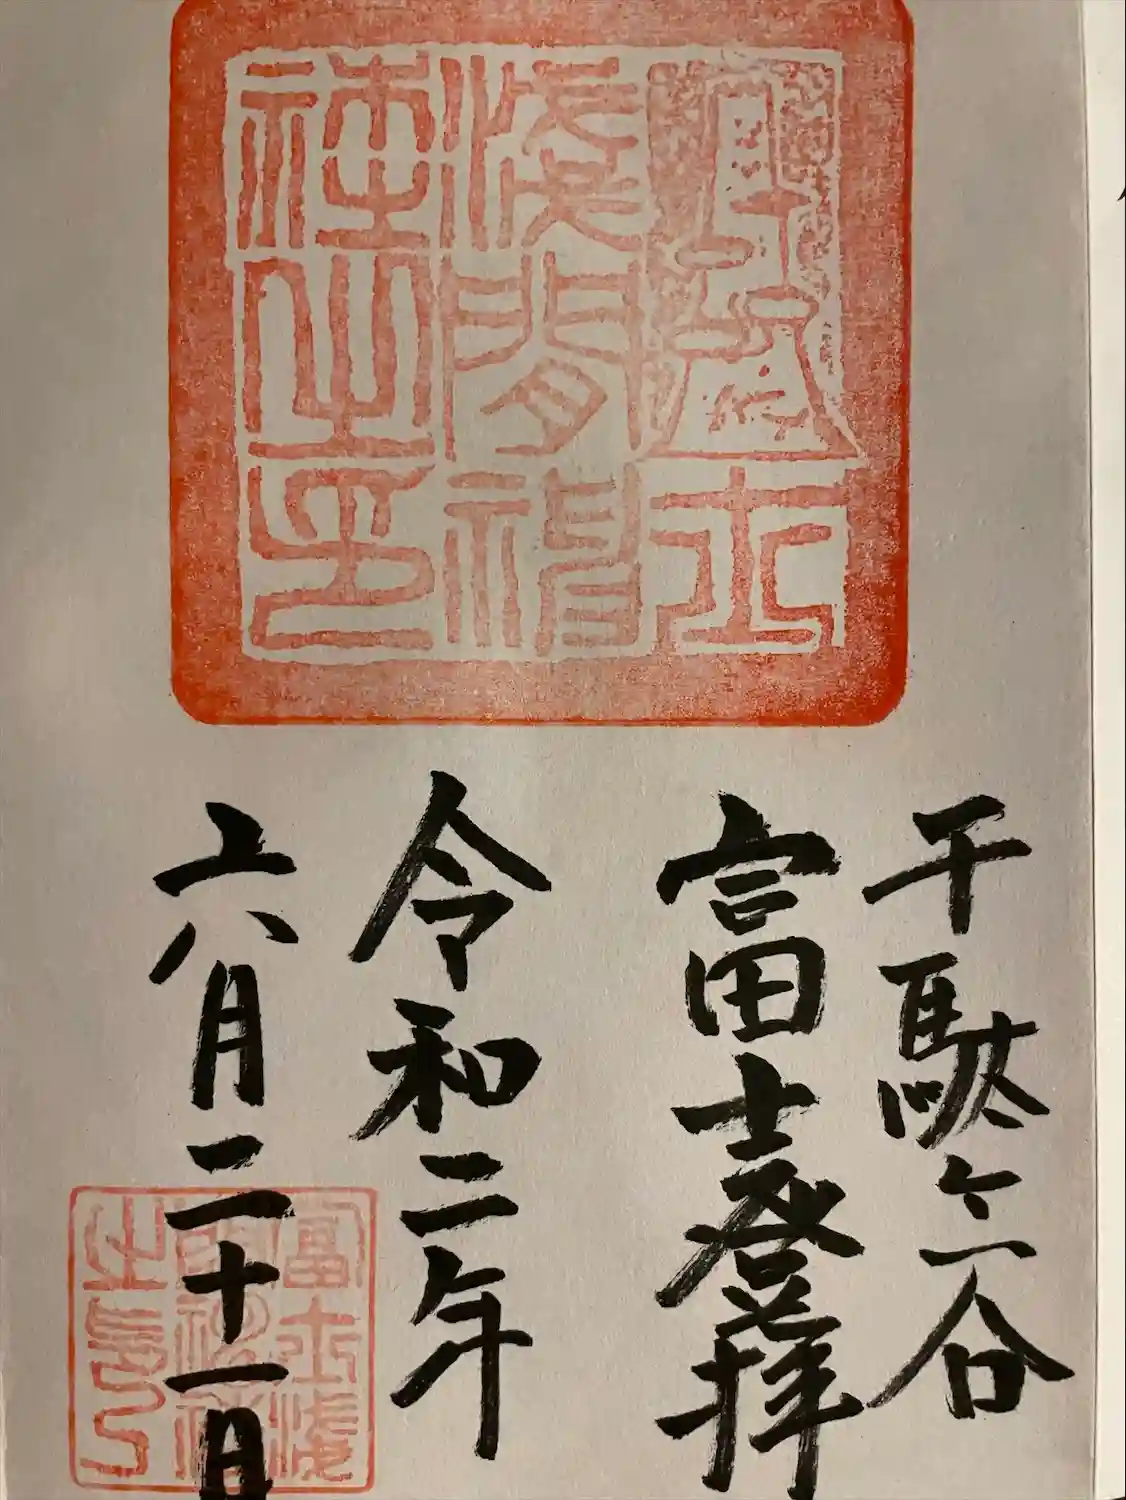 富士
淺間神
社之印
千駄ヶ谷
富士登拝
令和二年
六月二十一日
富士淺
間神社